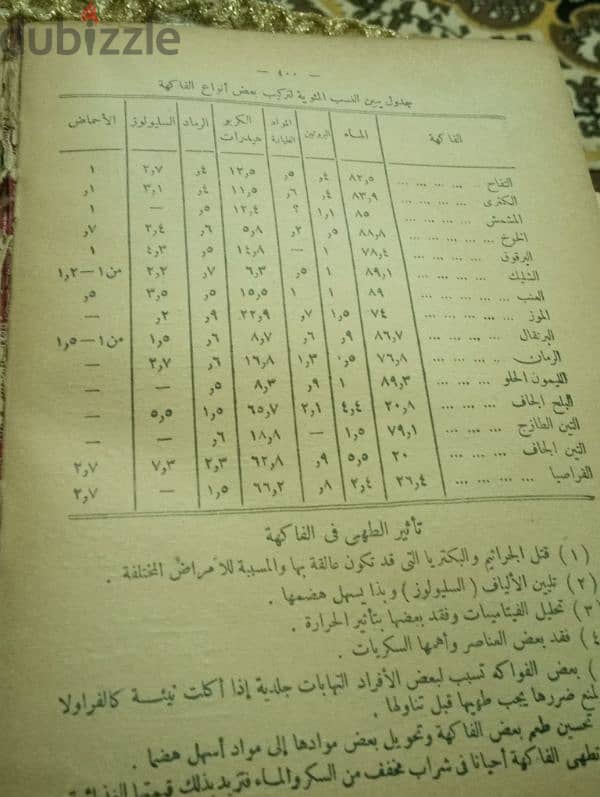 dubizzle
— ١٠٠ —
جدول يبين النسب المئوية لتركيب بعض أنواع الفاكهة
الفاكهة الماء البروتين المواد الطيارة الكربو هيدرات الرماد السليولوز الأحماض
التفاح ... ... ... ... ٨٢,٥ ,٤ ,٥ ١٢,٥ ,٤ ٢,٧ ١
الكمثرى ... ... ... ... ٨٣,٩ ,٤ ,٦ ١١,٥ ,٤ ٣,١ ,١
المشمش ... ... ... ... ٨٥ ١,١ ؟ ١٢,٤ ,٥ — ١
الخوخ ... ... ... ... ٨٨,٨ ,٥ ,٢ ٥,٨ ,٦ ٢,٤ ,٧
البرقوق ... ... ... ... ٧٨,٤ ١ — ١٤,٨ ,٥ ٤,٣ ١
الشليك ... ... ... ... ٨٩,١ ١ ,٥ ٦,٣ ,٧ ٢,٢ من ١ — ١,٢
العنب ... ... ... ... ٨٩ ١ ١ ١٥,٥ ,٥ ٣,٥ ,٥
الموز ... ... ... ... ٧٤ ١,٥ ,٧ ٢٢,٩ ,٩ ,٢ —
البرتقال ... ... ... ... ٨٦,٧ ,٩ ,٦ ٨,٧ ,٦ ١,٥ من ١ — ١,٥
الرمان ... ... ... ... ٧٦,٨ ,٥ ١,٣ ١٦,٨ ,٦ ٢,٧ —
الليمون الحلو ... ... ... ٨٩,٣ ١ ,٩ ٨,٣ ,٥ — —
البلح الجاف ... ... ... ٢٠,٨ ٤,٤ ٢,١ ٦٥,٧ ١,٥ ٥,٥ —
التين الطازج ... ... ... ٧٩,١ ١,٥ — ١٨,٨ ,٦ — —
التين الجاف ... ... ... ٢٠ ٥,٥ ,٩ ٦٢,٨ ٢,٣ ٧,٣ ٢,٧
القراصيا ... ... ... ... ٢٦,٤ ٢,٤ ,٨ ٦٦,٢ ١,٥ — ٢,٧
تأثير الطهى فى الفاكهة
(١) قتل الجراثيم والبكتريا التى قد تكون عالقة بها والمسببة للأمراض المختلفة .
(٢) تليين الألياف (السليولوز) وبذا يسهل هضمها .
٣) تحليل الفيتامينات وفقد بعضها بتأثير الحرارة .
٤) فقد بعض العناصر وأهمها السكريات .
) بعض الفواكه تسبب لبعض الأفراد التهابات جلدية إذا أكلت نيئة كالفراولا
لمنع ضررها يجب طهيها قبل تناولها .
تحسين طعم بعض الفاكهة وتحويل بعض موادها إلى مواد أسهل هضما .
تطهى الفاكهة أحيانا فى شراب مخفف من السكر والماء فتزيد بذلك قيمتها